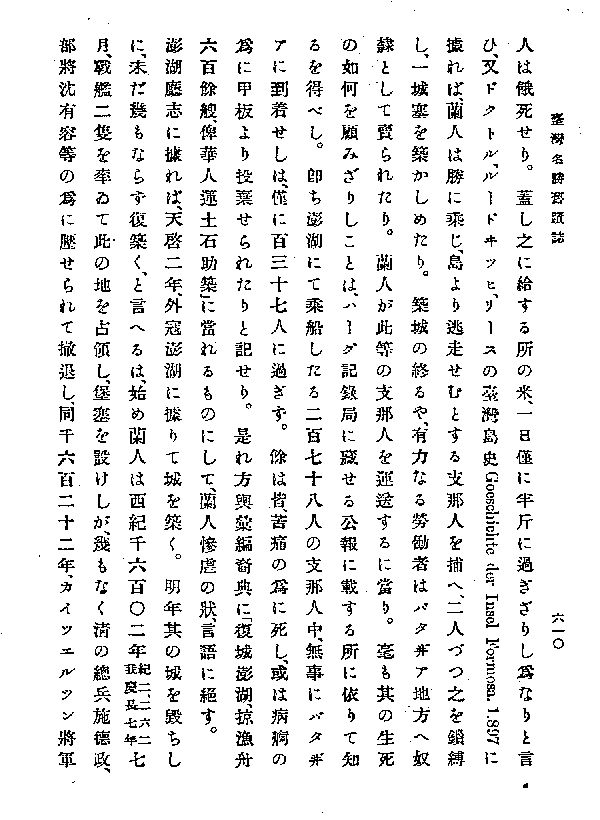 臺灣名勝舊蹟誌
六一〇
人は餓死せり。蓋し之に給する所の米、一日僅に半斤に過ぎざりし爲なりと言
ひ、又ドクトル、ルードヰッヒ、リースの臺灣島史 Goeschichte der Insel Formosa. 1.897 に
據れば、蘭人は勝に乘じ、島より逃走せむとする支那人を捕へ、二人づつ之を鎖縛
し、一城塞を築かしめたり。築城の終るや、有力なる勞働者はバタヸア地方へ奴
隷として賣られたり。蘭人が此等の支那人を運送するに當り。毫も其の生死
の如何を顧みざりしことは、ハーグ記錄局に藏せる公報に載する所に依りて知
るを得べし。卽ち澎湖にて乘船したる二百七十八人の支那人中、無事にバタヸ
アに到着せしは、僅に百三十七人に過ぎず。餘は皆、苦痛の爲に死し、或は病病の
爲に甲板より投棄せられたりと記せり。是れ方輿彙編裔典に「復城澎湖、掠漁舟
六百餘艘、俾華人運土石助築」に當れるものにして、蘭人慘虐の狀、言語に絕す。
澎湖廳志に據れば、天啓二年外冦澎湖に據りて城を築く。明年其の城を毀ちし
に、未だ幾もならず復築く、と言へるは、始め蘭人は西紀千六百〇二年紀二、二六二我慶長七年七
月、戰艦二隻を率ゐて此の地を占領し、堡塞を設けしが、幾もなく淸の總兵施德政、
部將沈有容等の爲に壓せられて撤退し、同千六百二十二年、カイツエルツン將軍